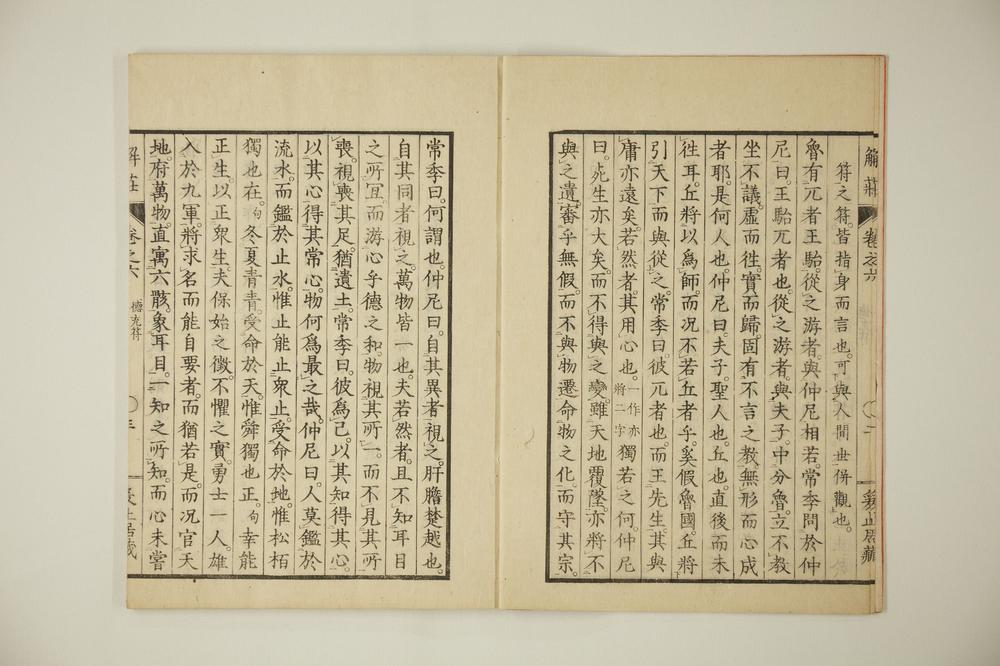 解莊 卷之六 二
符之符。皆指身而言也。可與人間世併觀也。
魯有兀者王駘。從之游者。與仲尼相若。常季問於仲
尼曰。王駘兀者也。從之游者。與夫子。中分魯。立不教
坐不議。虛而往。實而歸。固有不言之教。無形而心成
者耶。是何人也。仲尼曰。夫子。聖人也。丘也。直後而未
往耳。丘將以為師。而況不若丘者乎。奚假魯國。丘將
引天下而與從之。常季曰。彼兀者也。而王先生。其與
庸亦遠矣。若然者。其用心也。一作亦將二字獨若之何。仲尼
曰。死生亦大矣。而不得與之變。雖天地覆墜。亦將不
與之遺。審乎無假。而不與物遷。命物之化。而守其宗。
常季曰。何謂也。仲尼曰。自其異者視之。肝膽楚越也。
自其同者視之。萬物皆一也。夫若然者。且不知耳目
之所宜。而游心乎德之和。物視其所一。而不見其所
喪。視喪其足。猶遺土。常季曰。彼為己。以其知得其心。
以其心得其常心。物何為最之哉。仲尼曰。人莫鑑於
流水。而鑑於止水。惟止能止衆止。受命於地。惟松栢
獨也在。句冬夏青青。受命於天。惟舜獨也正。句幸能
正生。以正衆生。夫保始之徵。不懼之實。勇士一人。雄
入於九軍。將求名而能自要者。而猶若是。而況官天
地。府萬物。直寓六骸。象耳目。一知之所知。而心未嘗
解莊 卷之六 德充符 三